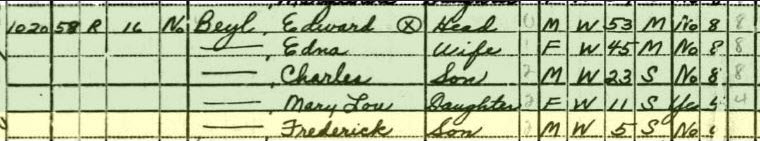 1020 58 R 16 No Beyl, Edward ⓧ Head 0 M W 53 M No 8 8
—— Edna Wife 1 F W 45 M No 8 8
—— Charles Son 2 M W 23 S No 8 8
—— Mary Lou Daughter 2 F W 11 S Yes 4
—— Frederick Son 2 M W 5 S No